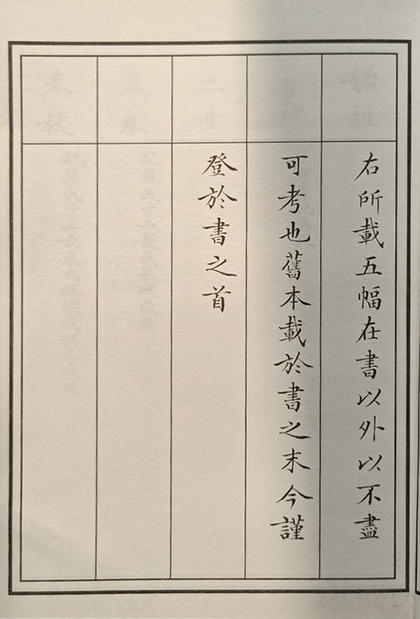 右所載五幅在書以外以不盡
可考也舊本載於書之末今謹
登於書之首